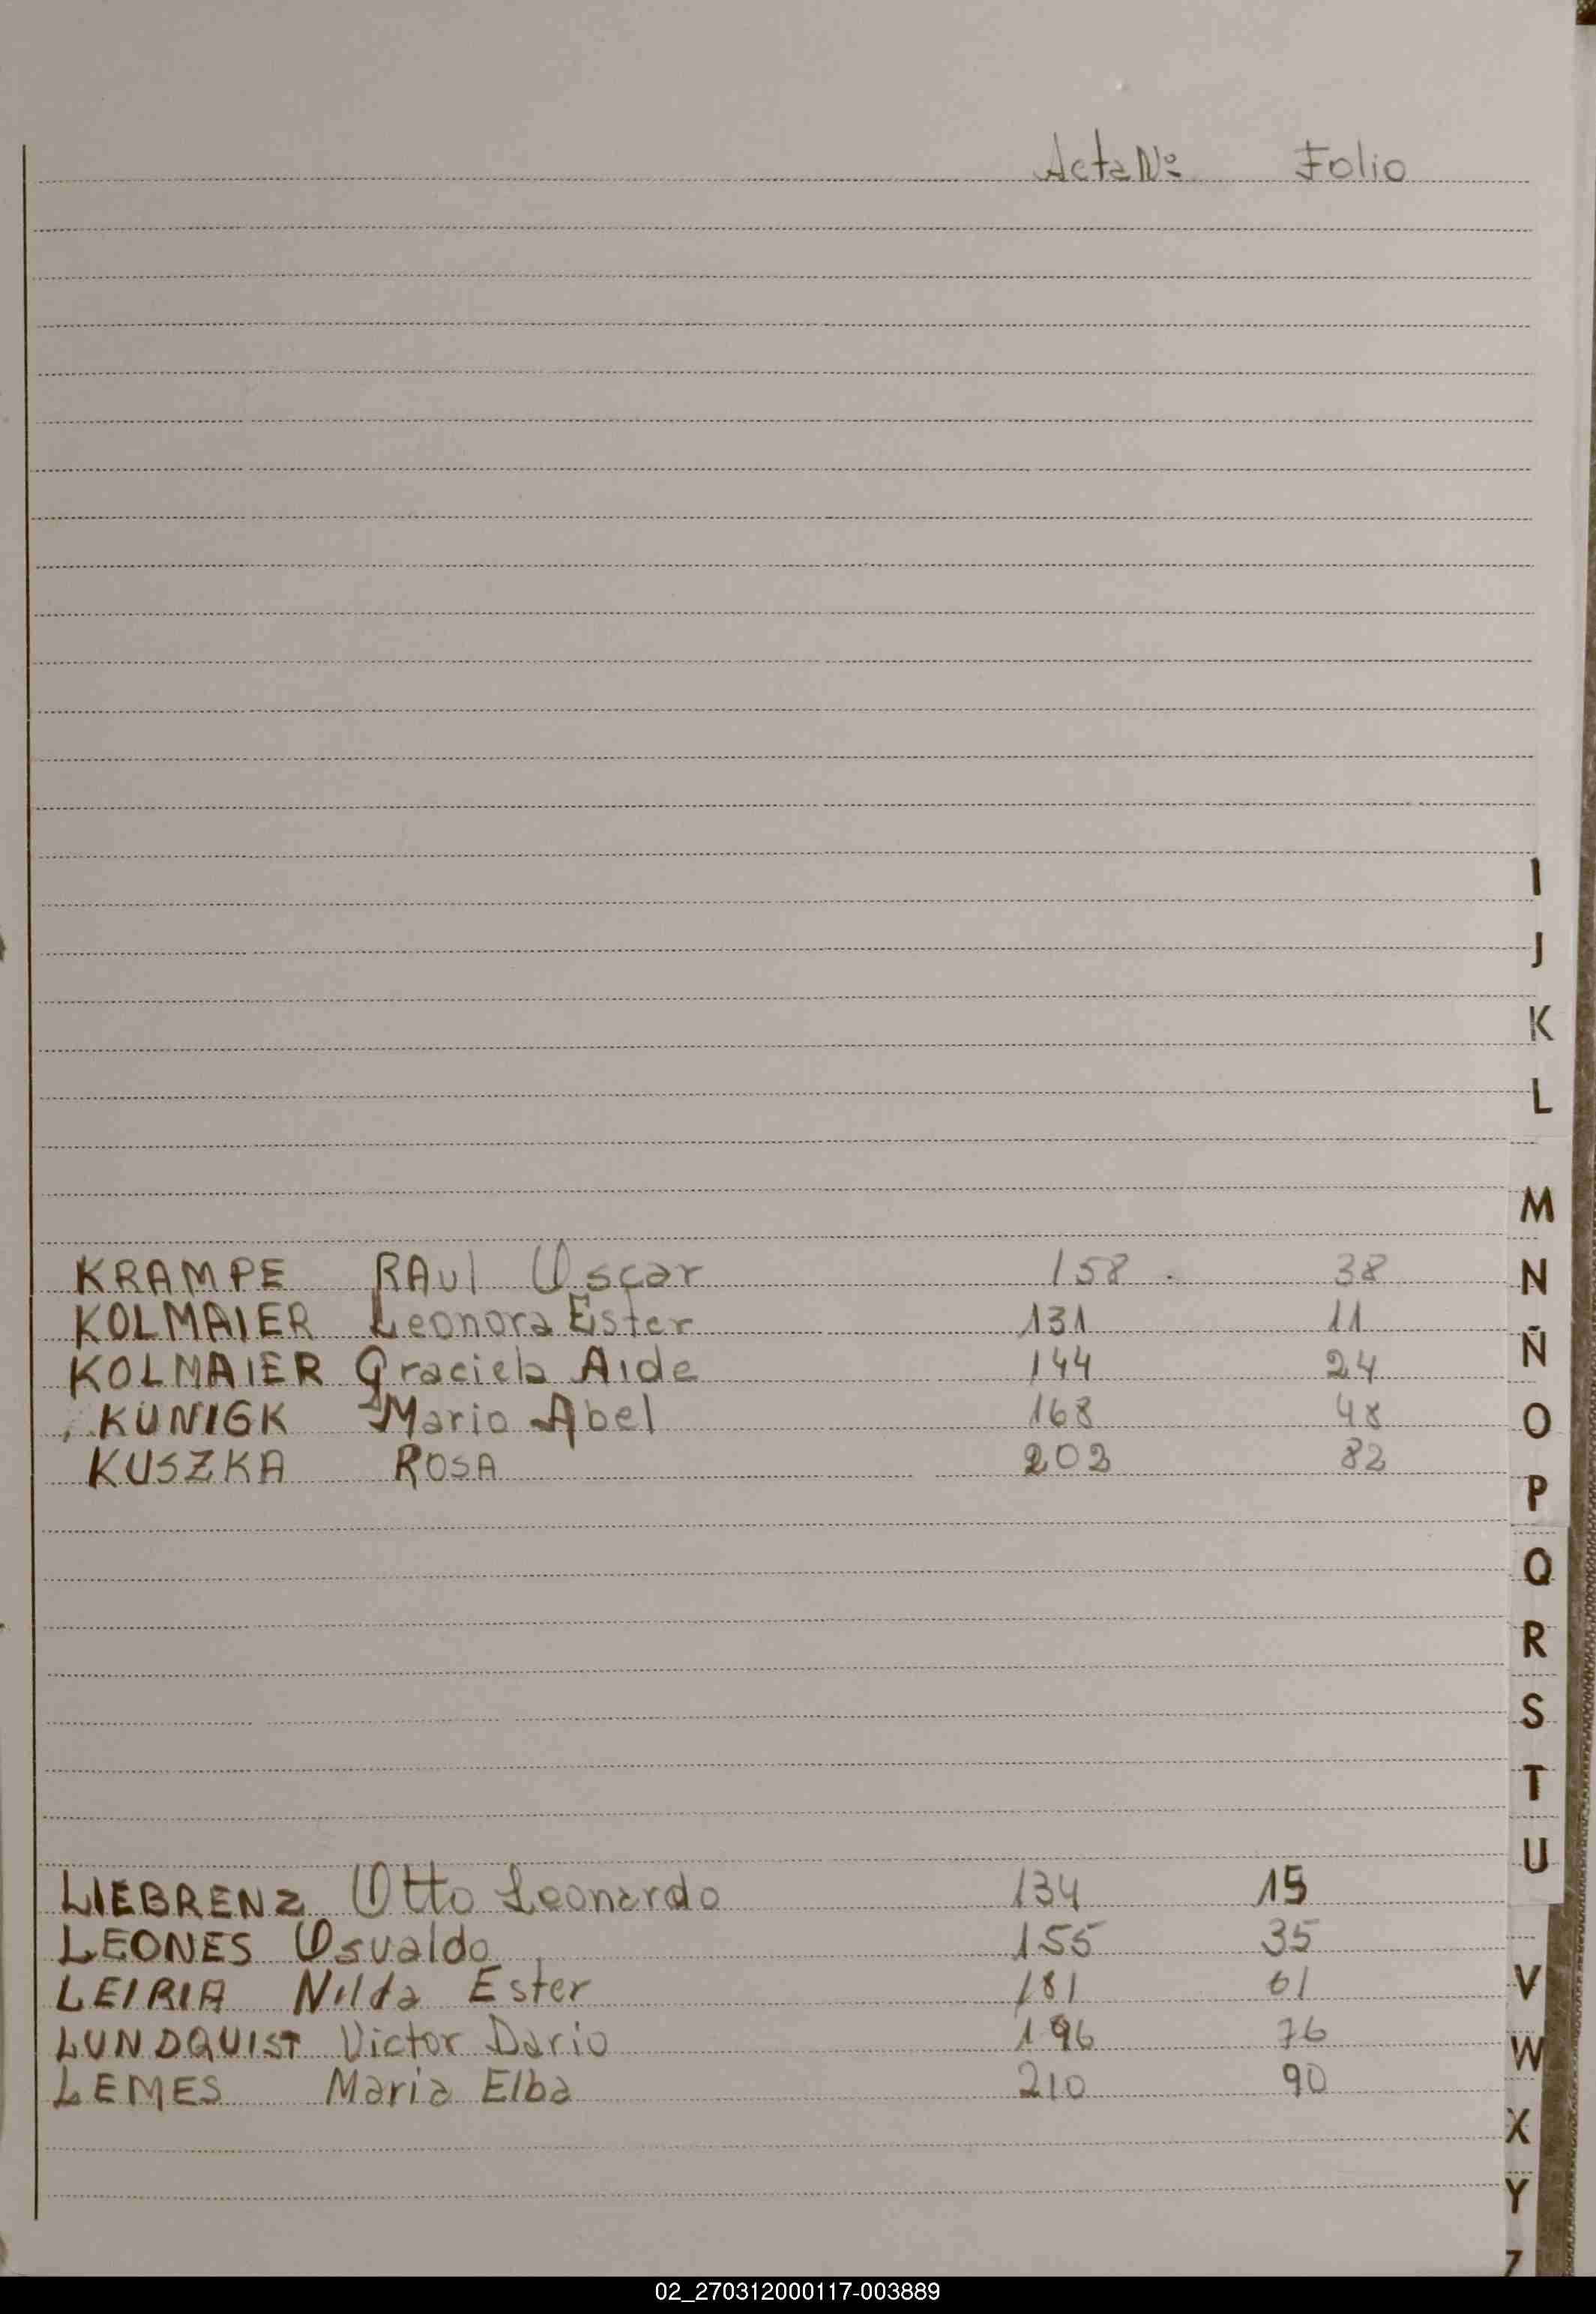 Acta Nº Folio
I
J
K
L
M
KRAMPE RAul Oscar 158 38
N
KOLMAIER Leonora Ester 131 11
Ñ
KOLMAIER Graciela Aide 144 24
KUNIGK Mario Abel 168 48
O
KUSZKA ROSA 202 82
P
Q
R
S
T
U
LIEBRENZ Otto Leonardo 134 15
LEONES Osvaldo 155 35
LEIRIA Nilda Ester 181 61
V
LUNDQUIST Victor Dario 196 76
W
LEMES Maria Elba 210 90
X
Y
Z
02_270312000117-003889